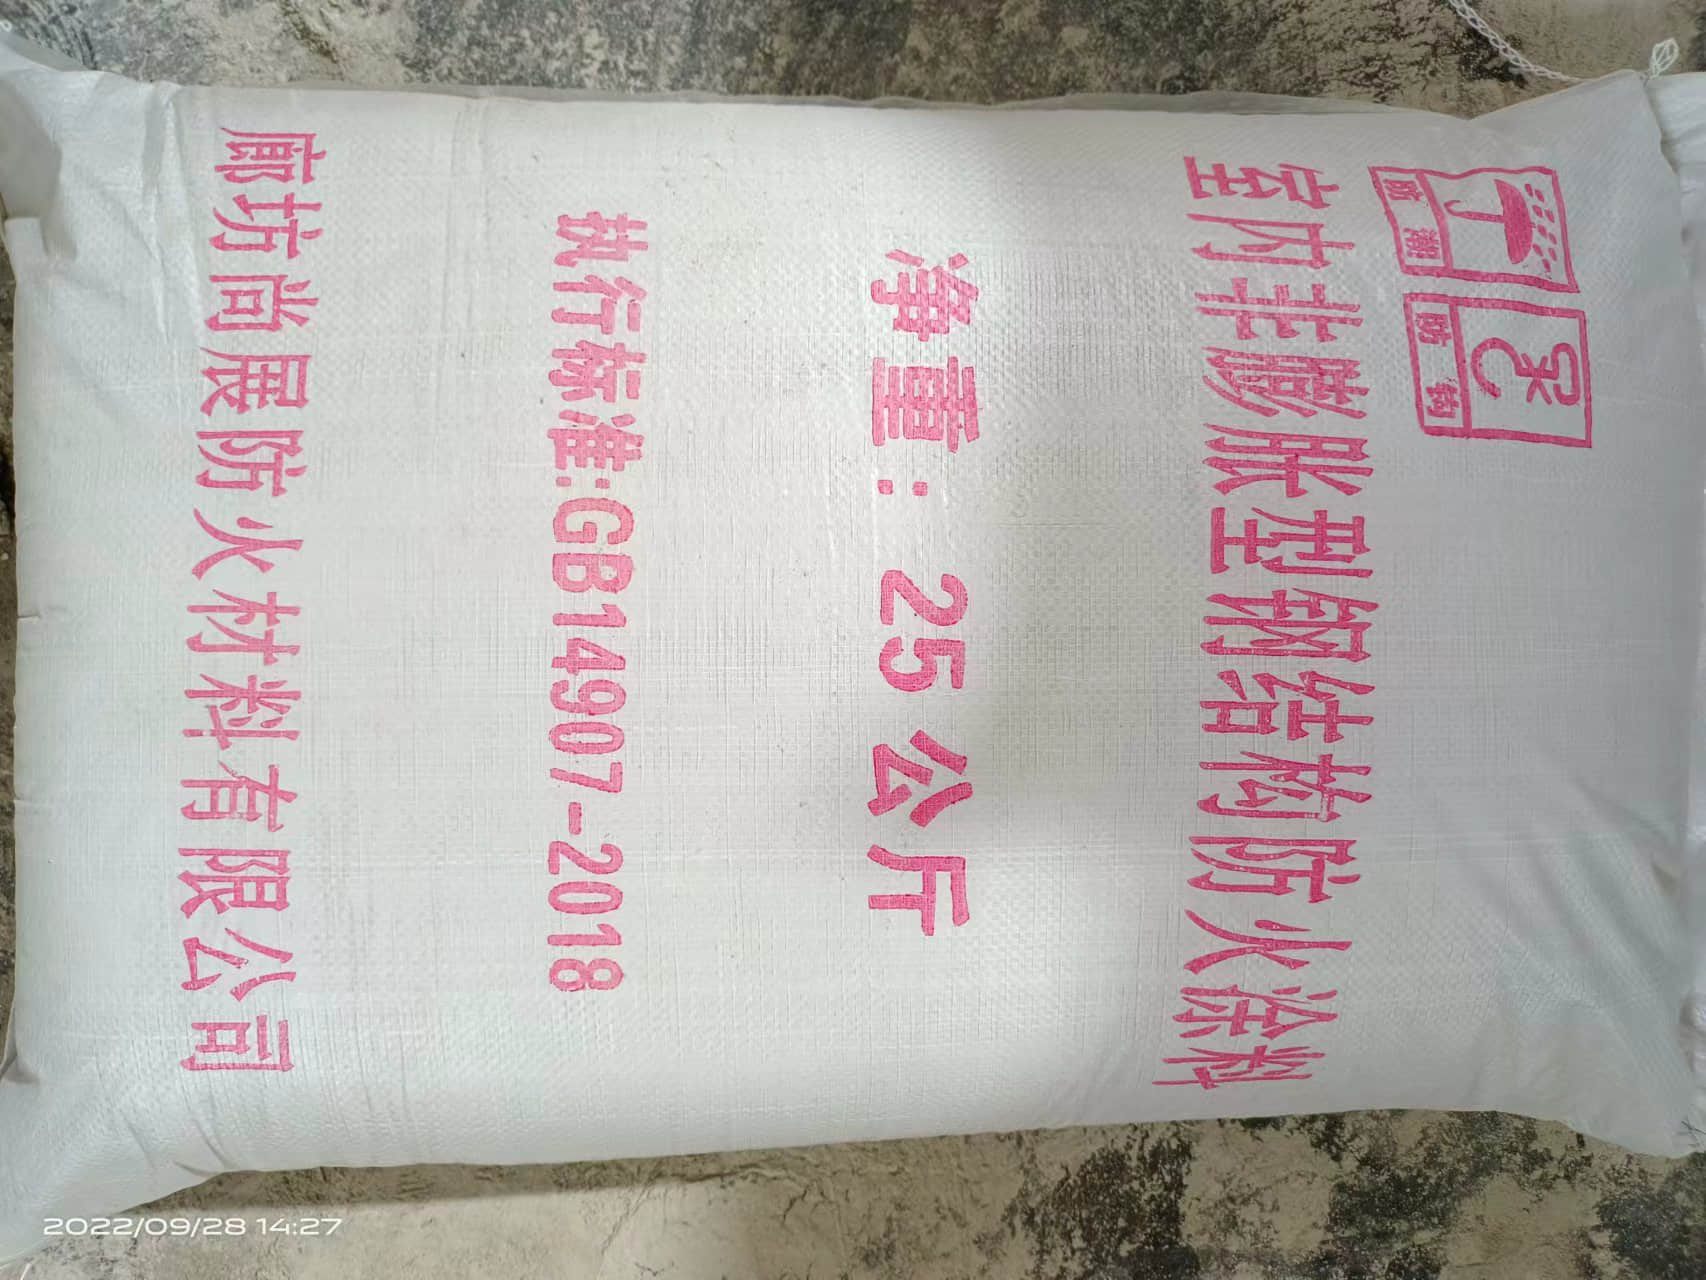 防潮
防钩
室内非膨胀型钢结构防火涂料
净重：25公斤
执行标准:GB14907-2018
廊坊尚展防火材料有限公司
2022/09/28 14:27